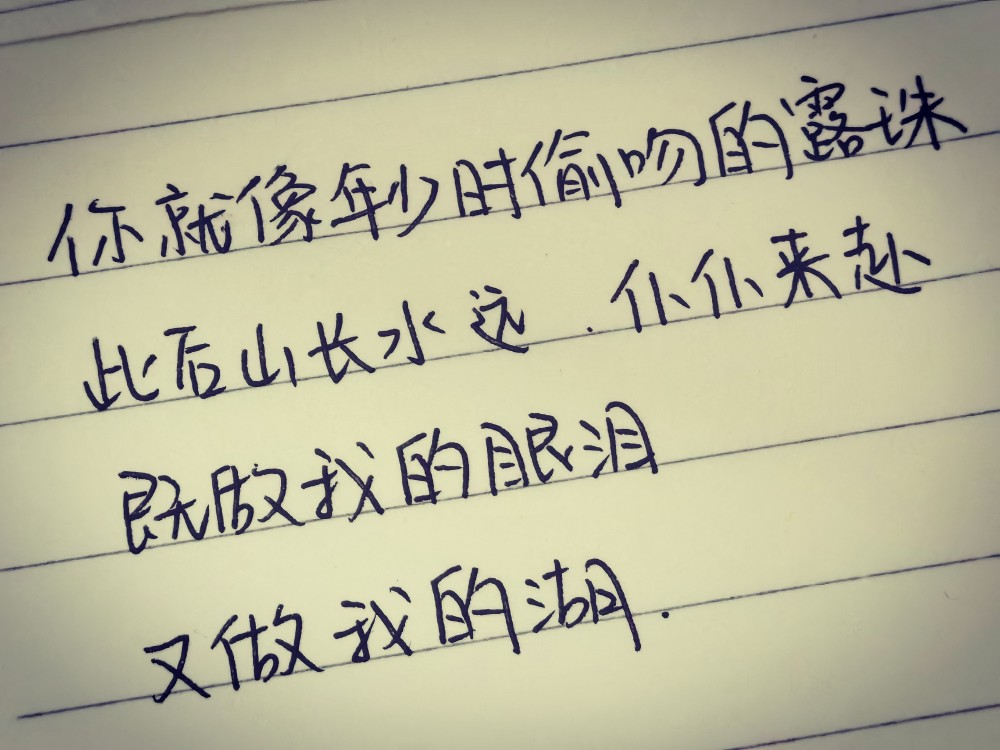 你就像年少时偷吻的露珠
此后山长水远.仆仆来赴
既做我的眼泪
又做我的湖.